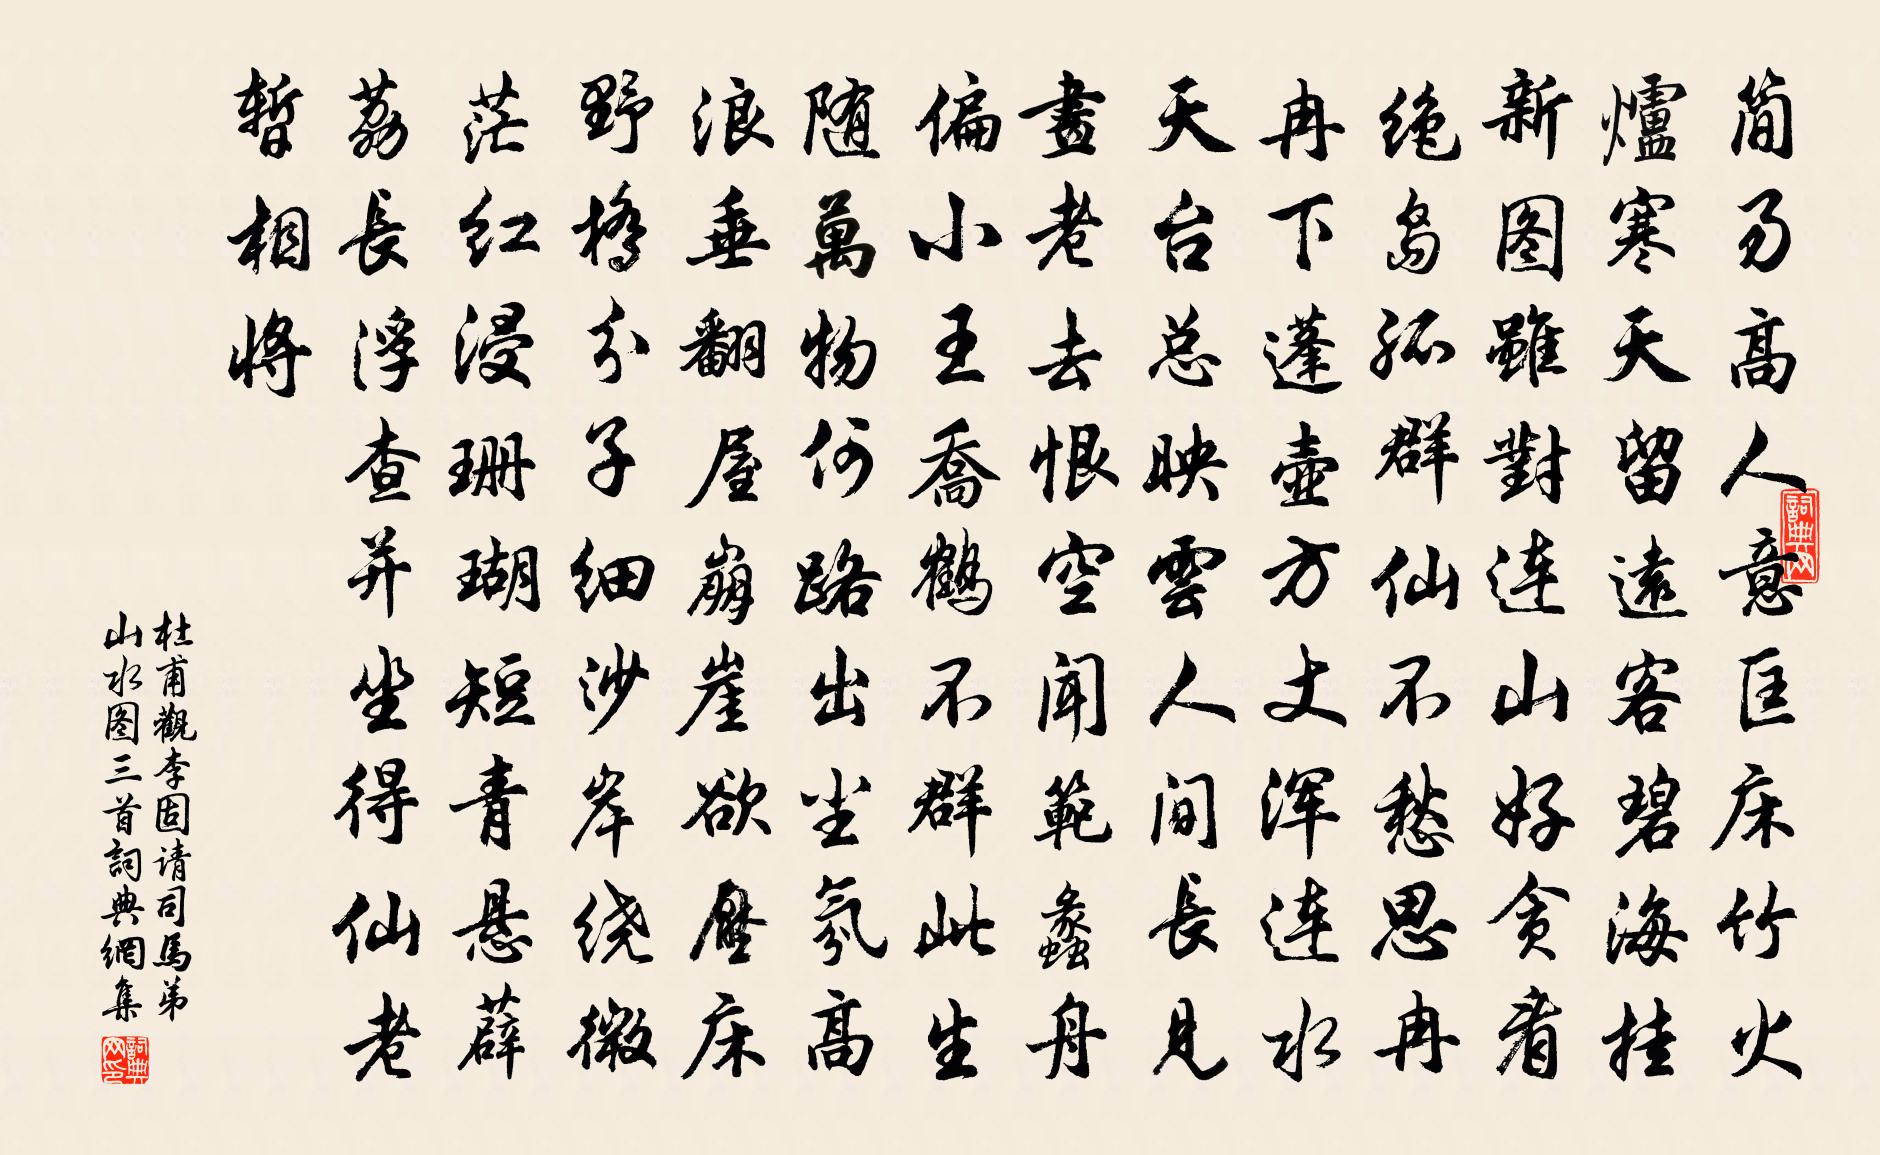 简易高人意匡床竹火
爐寒天留遠客碧海挂
新图雖對連山好貪看
绝島孤群仙不愁思冉
冉下蓬壺方丈浑連水
天台总映雲人间長見
畫老去恨空闻範蠡舟
偏小王喬鶴不群此生
随萬物何路出尘氛高
浪垂翻屋崩崖欲壓床
野橋分子细沙岸绕微
茫红浸珊瑚短青悬薜
荔長浮查并坐得仙老
暫相将
杜甫觀李固请司馬弟
山水图三首詞典網集
詞典网
詞典网印